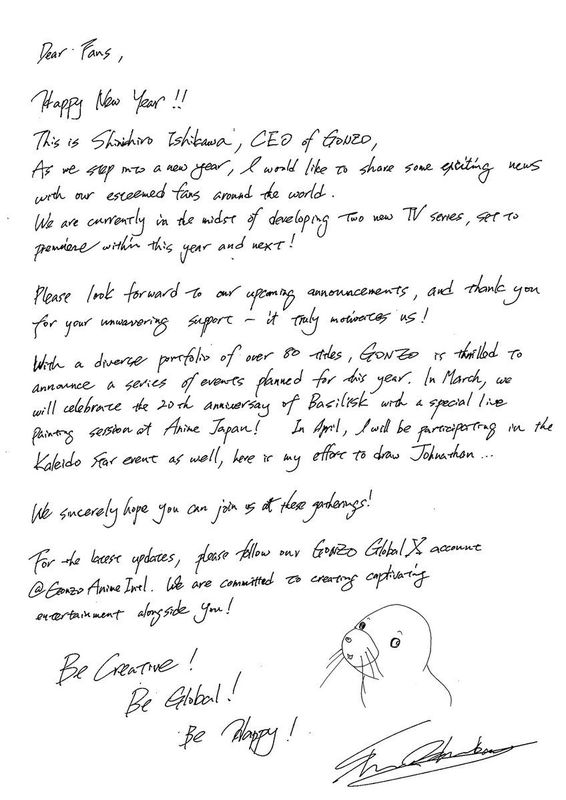 Dear Fans,
Happy New Year!!
This is Shinichiro Ishikawa, CEO of GONZO,
As we step into a new year, I would like to share some exciting news
with our esteemed fans around the world.
We are currently in the midst of developing two new TV series, set to
premiere within this year and next!
Please look forward to our upcoming announcements, and thank you
for your unwavering support - it truly motivates us!
With a diverse portfolio of over 80 titles, GONZO is thrilled to
announce a series of events planned for this year. In March, we
will celebrate the 20th anniversay of Basilisk with a special live
painting session at Anime Japan! In April, I will be participating in the
Kaleido Star event as well, here is my effort to draw Johnathon...
We sincerely hope you can join us at these gatherings!
For the latest updates, please follow our GONZO Global X account
@GonzoAnimeIntl. We are committed to creating captivating
entertainment alongside you!
Be Creative!
Be Global!
Be Happy!